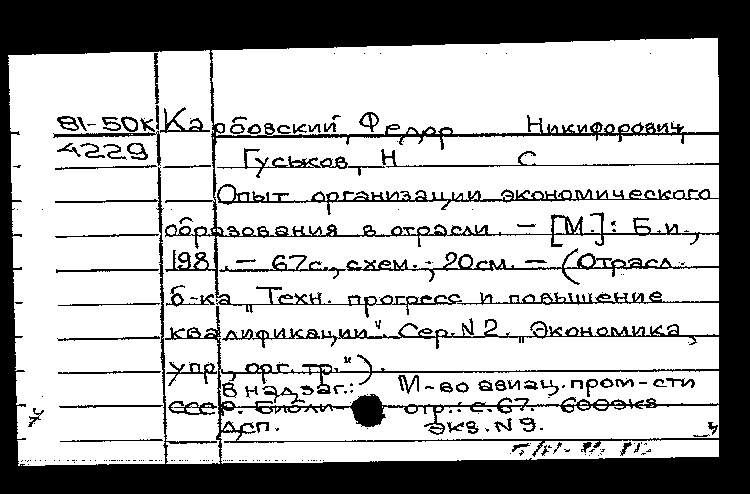 81-50К Карбовский, Федор Никифорович,
4229 Гуськов, Н С
Опыт организации экономического
образования в отрасли. — [М.]: Б.и.,
1981. — 67с., схем.; 20см. — (Отрасл.
б-ка „Техн. прогресс и повышение
квалификации". Сер. N 2. „Экономика,
упр., орг. тр.").
В надзаг.: М-во авиац. пром-сти
СССР. Библи- отр.: с. 67. 600экз
Дсп. экз. N 9.